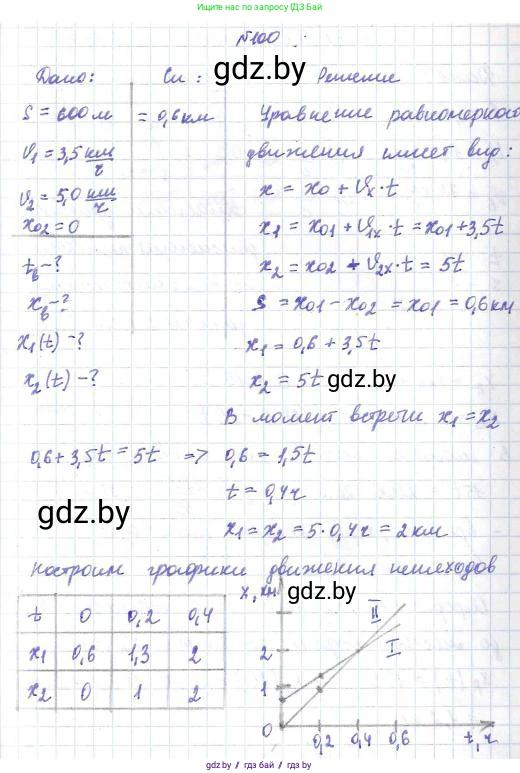 Присоединяйтесь к ГДЗ Бай
№100
Дано:
S = 600 м
υ1 = 3,5 км/ч
υ2 = 5,0 км/ч
x02 = 0
tв - ?
xв - ?
x1(t) - ?
x2(t) - ?
Си :
= 0,6 км
gdz.by
Решение
Уравнение равномерного
движения имеет вид:
x = x0 + υx · t
x1 = x01 + υ1x · t = x01 + 3,5t
x2 = x02 + υ2x · t = 5t
S = x01 - x02 = x01 = 0,6 км
x1 = 0,6 + 3,5t
x2 = 5t
gdz.by
В момент встречи x1 = x2
0,6 + 3,5t = 5t => 0,6 = 1,5t
gdz.by
t = 0,4 ч
x1 = x2 = 5 · 0,4 ч = 2 км
Построим графики движения пешеходов
gdz.by
t 0 0,2 0,4
x1 0,6 1,3 2
x2 0 1 2
x, км
II
I
2
1
0
0,2 0,4 0,6 t, ч
gdz.by / гдз бай / решебники